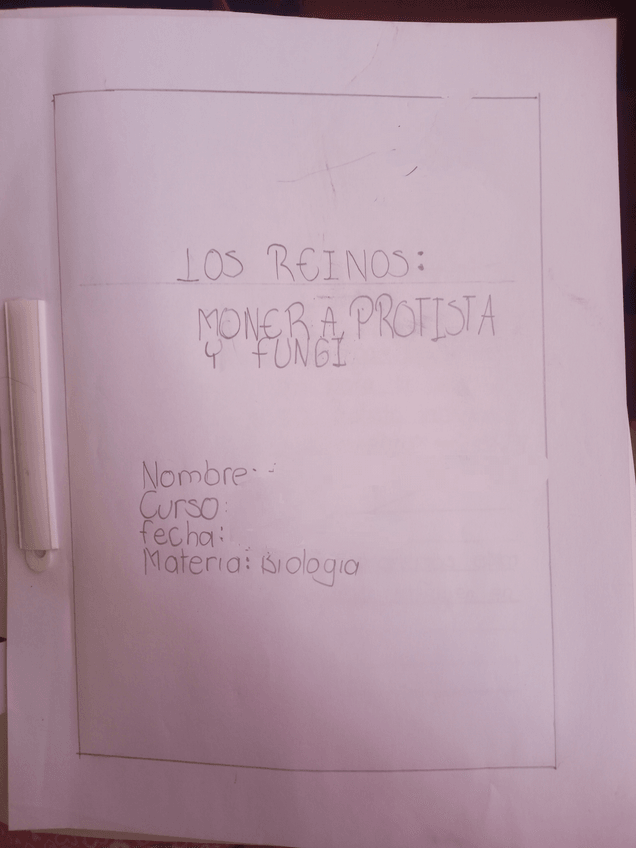 LOS REINOS:
MONERA PROTISTA
Y FUNGI
Nombre:
Curso:
fecha:
Materia: Biologia